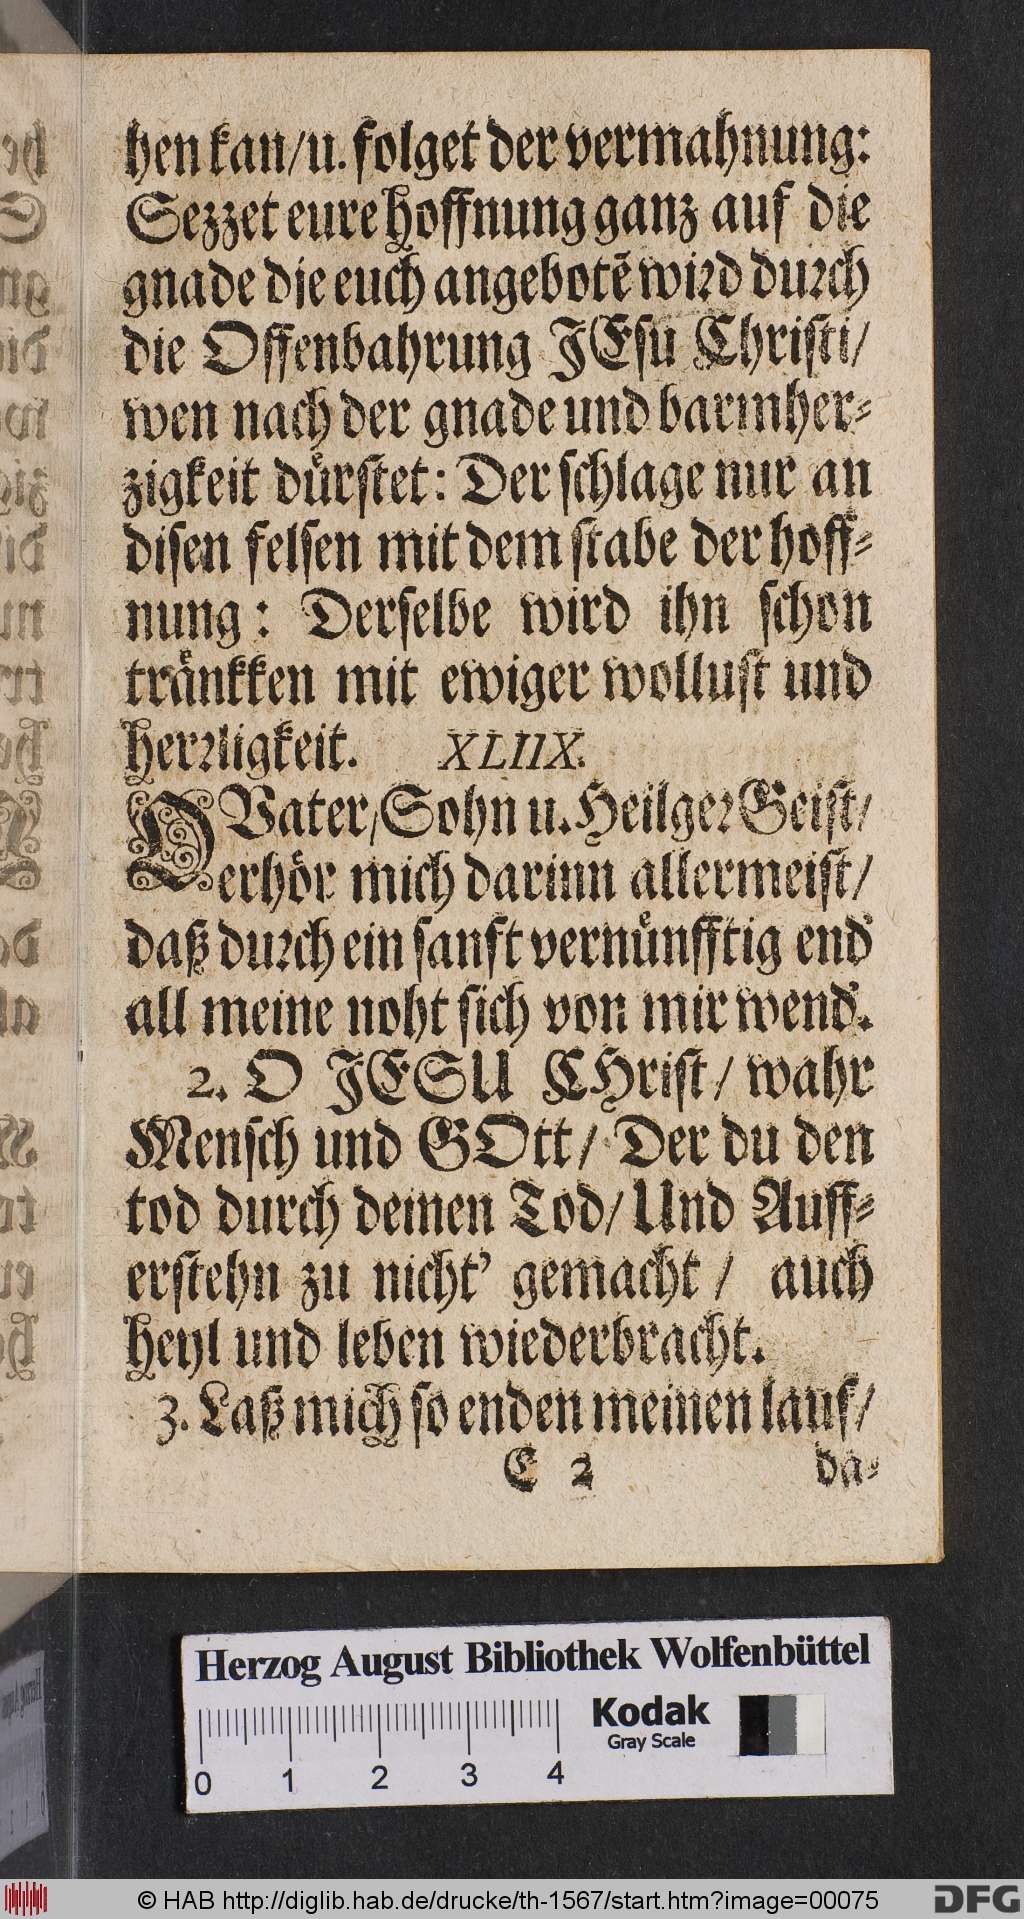 hen kan/u. folget der vermahnung:
Sezzet eure hoffnung ganz auf die
gnade die euch angebotẽ wird durch
die Offenbahrung JEsu Christi/
wen nach der gnade und barmher-
zigkeit duͤrstet: Der schlage nur an
disen felsen mit dem stabe der hoff-
nung: Derselbe wird ihn schon
traͤnkken mit ewiger wollust und
herrligkeit. XLIIX.
O Vater/Sohn u. Heilger Geist/
erhoͤr mich darinn allermeist/
daß durch ein sanft vernuͤnfftig end'
all meine noht sich von mir wend'.
2. O JESU CHrist/ wahr
Mensch und GOtt/ Der du den
tod durch deinen Tod/ Und Auff-
erstehn zu nicht' gemacht/ auch
heyl und leben wiederbracht.
3. Laß mich so enden meinen lauf/
E 2 da-
Herzog August Bibliothek Wolfenbüttel
Kodak
Gray Scale
0 1 2 3 4
© HAB http://diglib.hab.de/drucke/th-1567/start.htm?image=00075
DFG